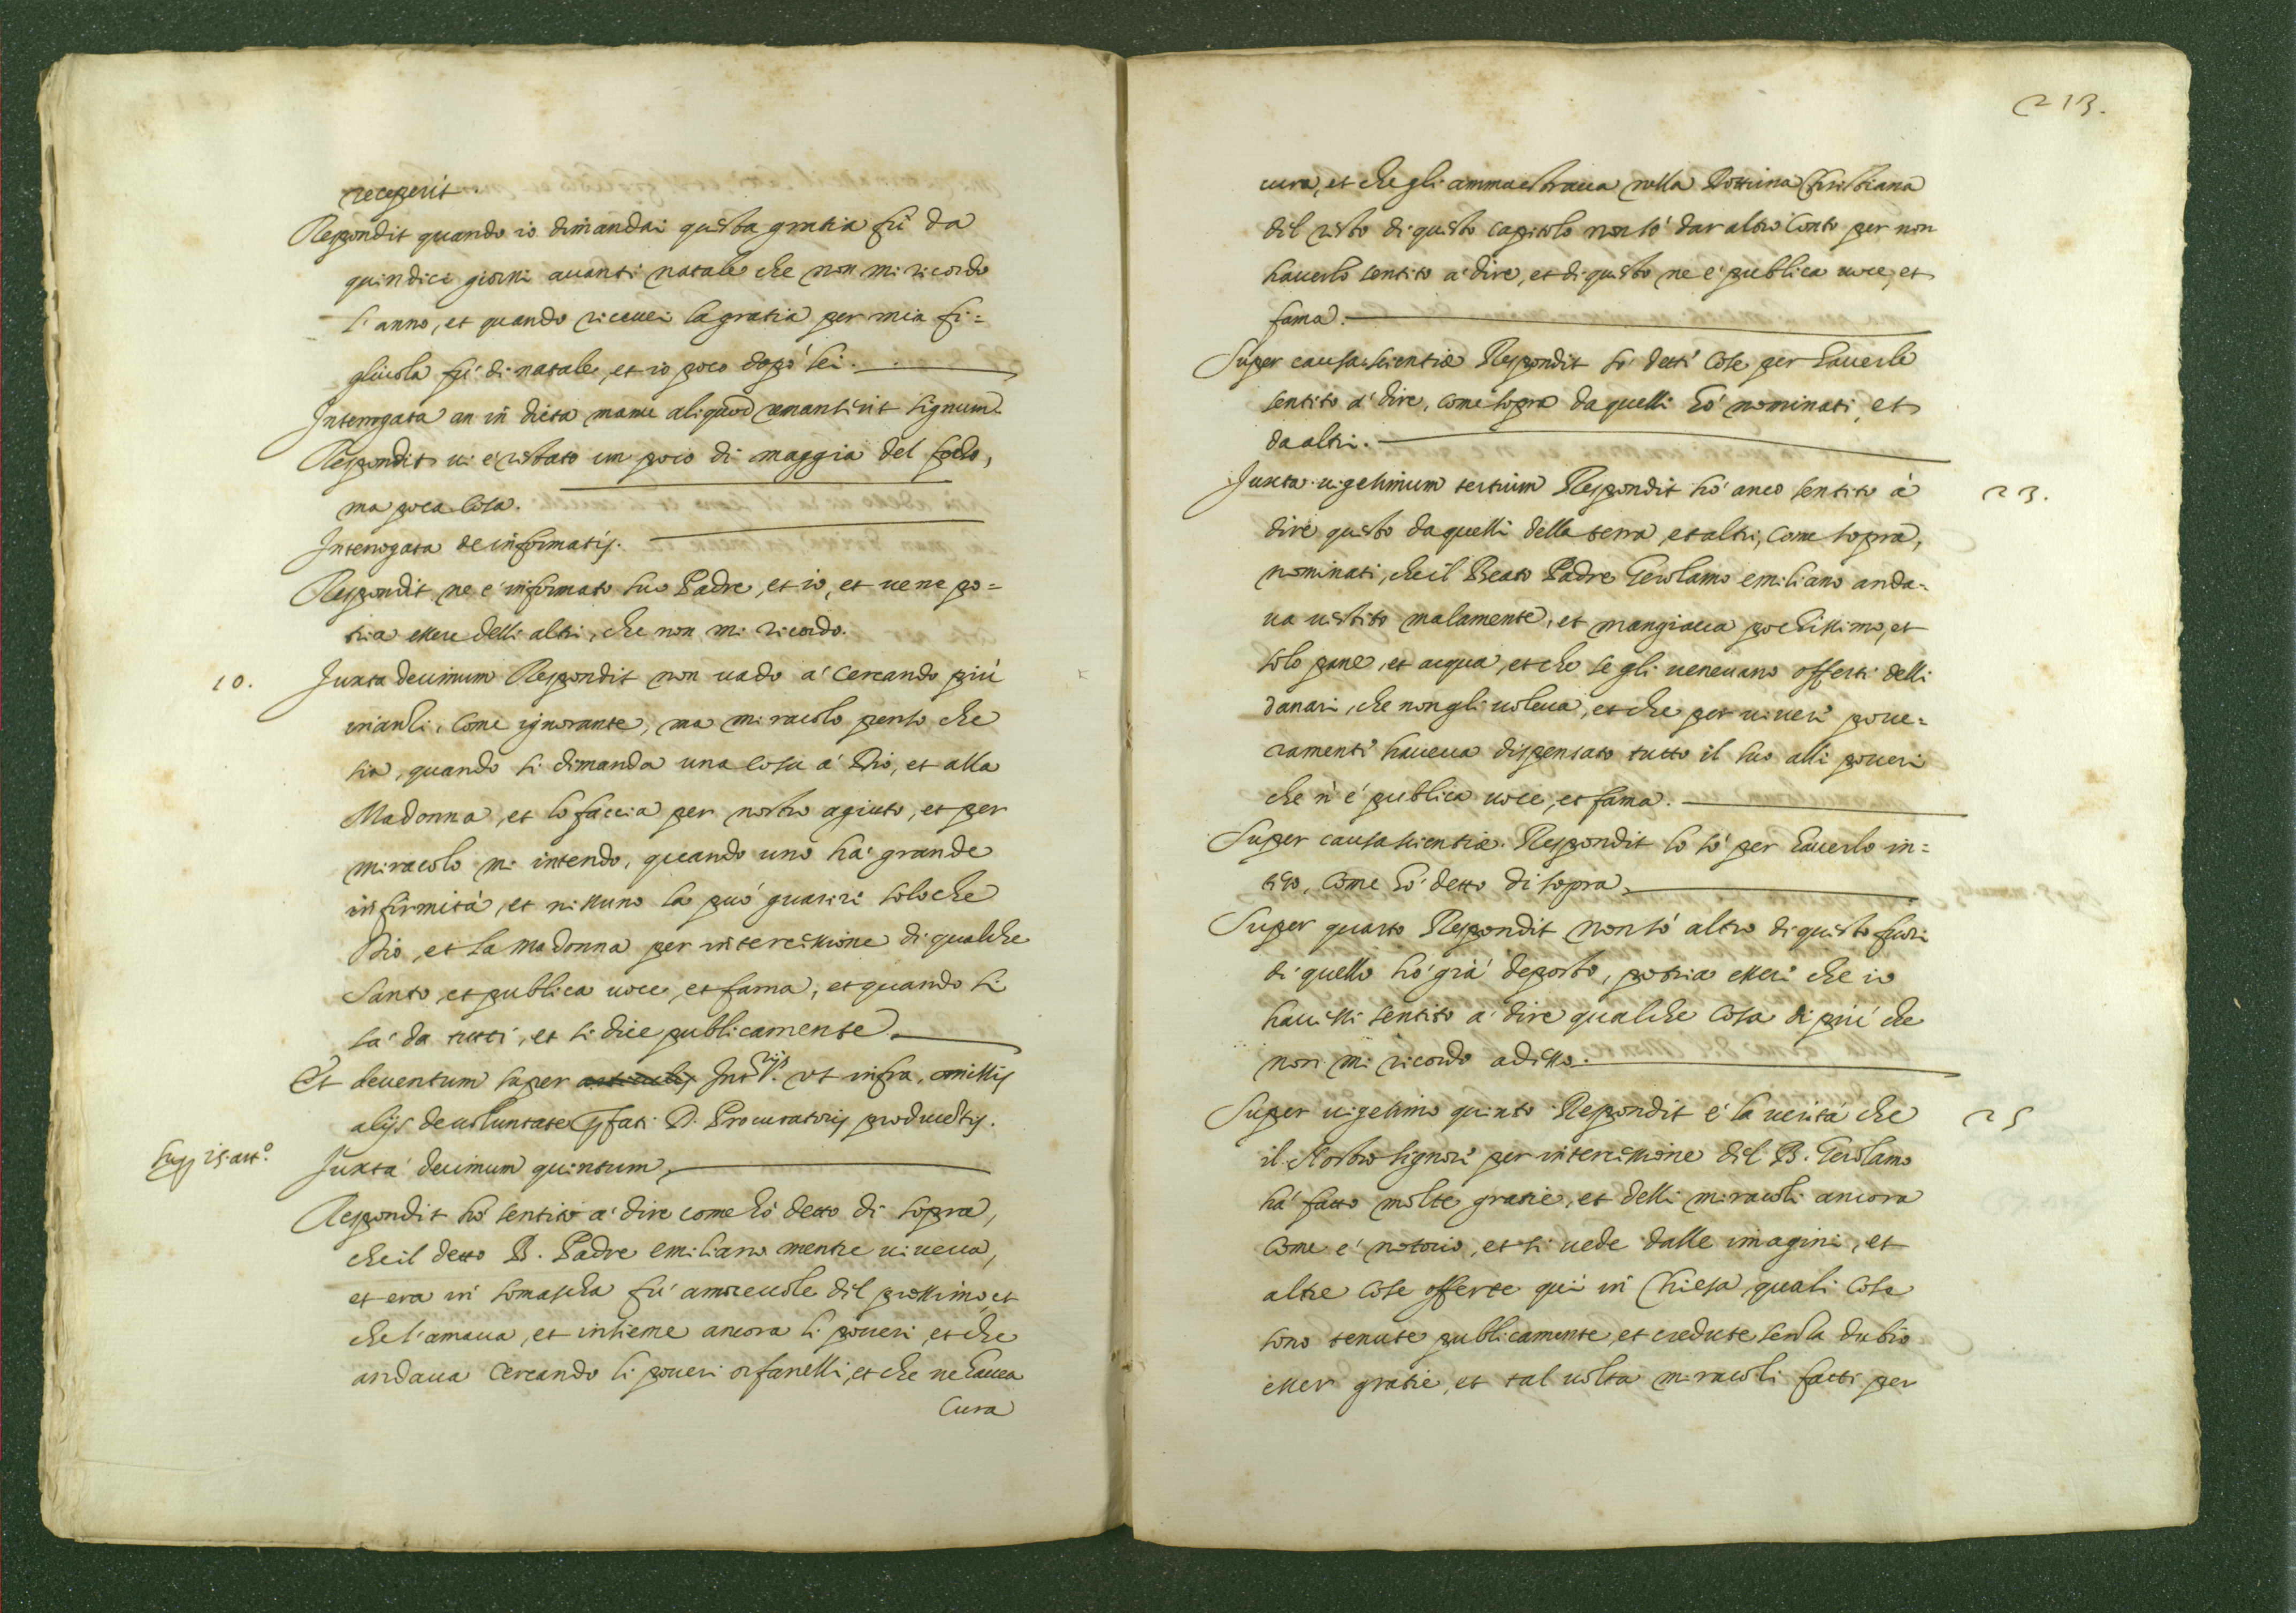 receperit
Respondit quando io dimandai questa gratia fù da
quindici giorni auanti natale che non mi ricordo
l'anno, et quando riceuei la gratia per mia fi=
gliuola fù di natale, et io poco dopò lei.
Interrogata an in dicta manu aliquod remanserit signum
Respondit ui è restato un poco di maggia del foco,
ma poca cosa.
Interrogata de informatis.
Respondit ne è informato suo Padre, et io, et ue ne po=
tria essere delli altri, che non mi ricordo.
10.
Juxta decimum Respondit non uado a' cercando più
inanti, come ignorante, ma miracolo penso che
sia, quando si dimanda una cosa a' Dio, et alla
Madonna, et lo faccia per nostro agiuto, et per
miracolo mi intendo, quando uno ha' grande
infirmità, et nissuno la può guarire solo che
Dio, et la madonna per intercessione di qualche
Santo, et publica uoce, et fama, et quando si
sa' da tutti, et si dice publicamente.
Et deuentum super Int.rijs ut infra, omissis
alijs de uoluntate pfati D. Procuratoris productis.
Sup 15. art.o
Juxta decimum quintum,
Respondit hò sentito a' dire come hò detto di sopra,
che il detto B. Padre emiliano mentre uiueua,
et era in somascha fù amoreuole del prossimo, et
che l'amaua, et insieme ancora li poueri, et che
andaua cercando li poueri orfanelli, et che ne hauea
Cura
213.
cura, et che gli ammaestraua nella Dottrina Christiana
del resto di questo capitolo non sò dar altro conto per non
hauerlo sentito a' dire, et di questo ne è publica uoce, et
fama.
Super causa scientiæ Respondit sò dette cose per hauerle
sentito a' dire, come sopra da quelli hò nominati, et
da altri.
Juxta uigesimum tertium Respondit hò anco sentito à
23.
dire questo da quelli della terra, et altri, come sopra,
nominati, che il Beato Padre Gerolamo emiliano anda=
ua uestito malamente, et mangiaua pochissimo, et
solo pane, et acqua, et che se gli ueneuano offerti delli
danari, che non gli uoleua, et che per uiuere poue=
ramente haueua dispensato tutto il suo alli poueri
che n' è publica uoce, et fama.
Super causa scientiæ Respondit lo sò per hauerlo in=
teso, come hò detto di sopra.
Super quarto Respondit non sò altro di questo fuori
di quello hò già deposto, potria essere che io
hauessi sentito a' dire qualche cosa di più che
non mi ricordo adesso.
Super uigesimo quinto Respondit è la uerità che
25
il Nostro signore per intercessione del B. Gerolamo
ha' fatto molte gratie, et delli miracoli ancora
come è notorio, et si uede dalle imagini, et
altre cose offerte qui in Chiesa, quali cose
sono tenute publicamente, et credute senza dubio
esser gratie, et tal uolta miracoli fatti per